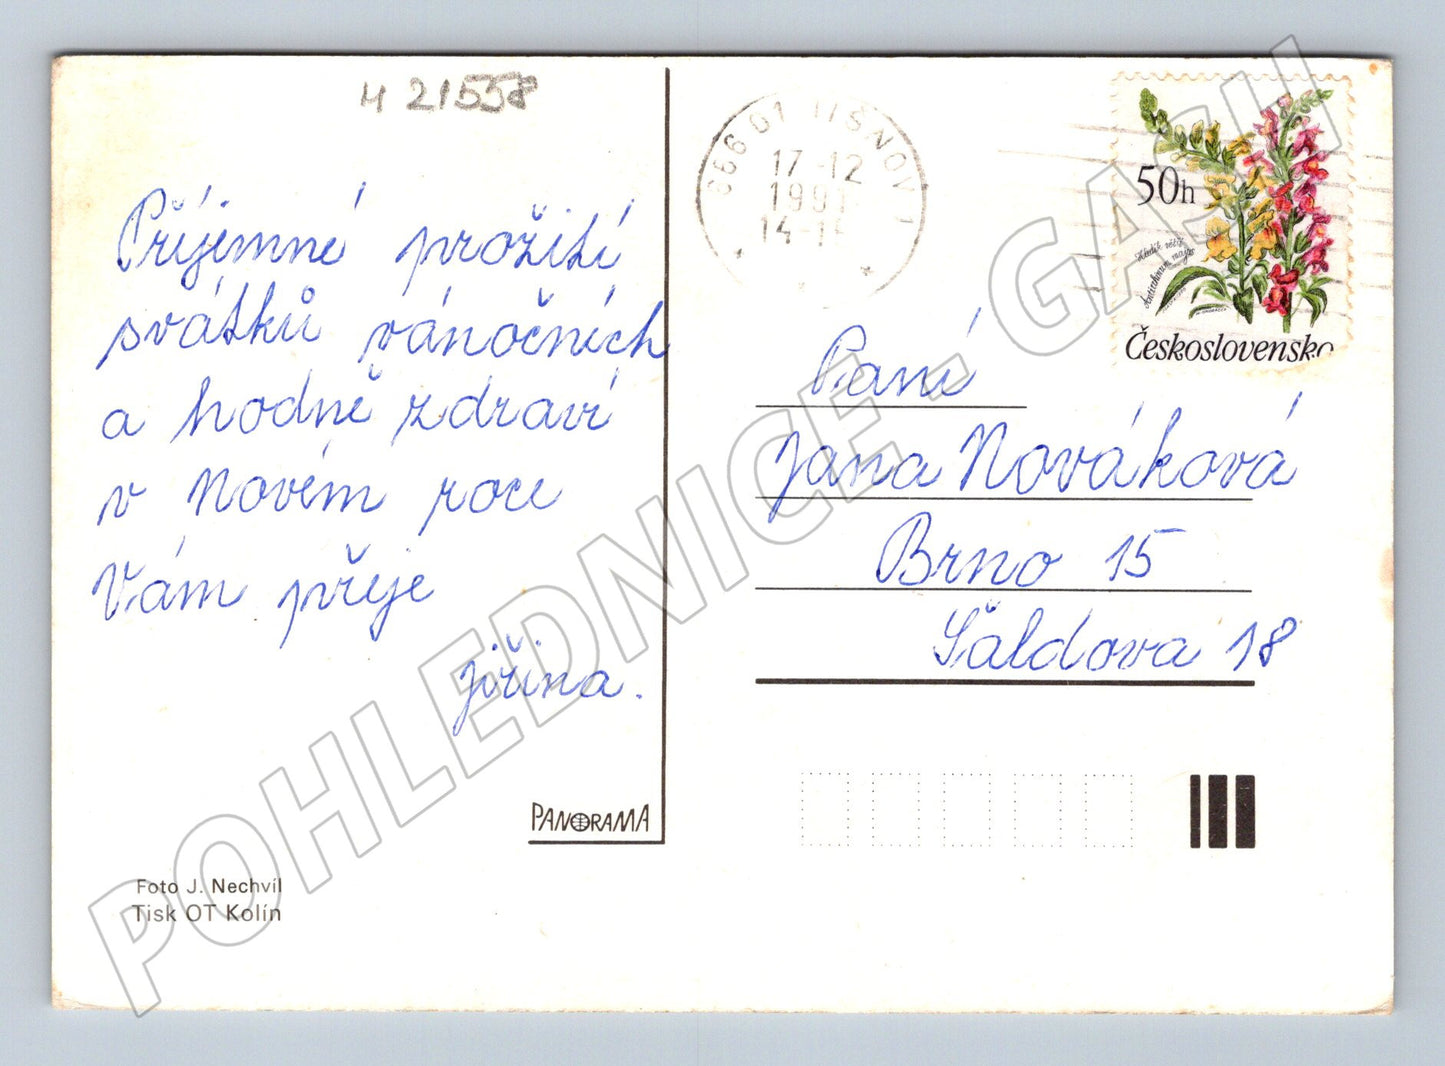 H 21558
Příjemné prožití
svátků vánočních
a hodně zdraví
v Novém roce
Vám přeje
Jiřina.
PANORAMA
Foto J. Nechvíl
Tisk OT Kolín
666 01 TIŠNOV 1
17-12
1991
14-15
50h
Hledík větší
Antirrhinum majus
Československo
Paní
Jana Nováková
Brno 15
Šaldova 18
POHLEDNICE - GASH